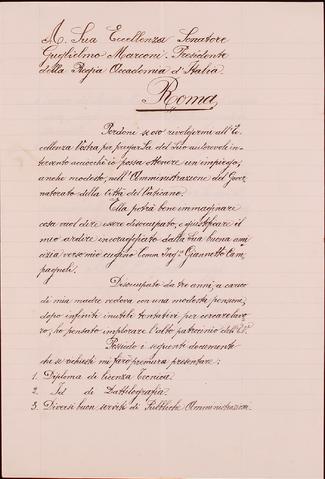 A Sua Eccellenza Senatore
Guglielmo Marconi. Presidente
della Regia Accademia d'Italia
Roma
Perdoni se oso rivolgermi all'Ec
cellenza Vostra per pregarla del Suo autorevole in
tervento acciocchè io possa ottenere un impiego,
anche modesto, nell'Amministrazione del Gover
natorato della Città del Vaticano.
Ella potrà bene immaginare
cosa vuol dire essere disoccupato, e giustificare il
mio ardire incoraggiato dalla Sua buona ami
cizia verso mio cugino Comm. Ing. Giannetto Cam
pagnoli.
Disoccupato da tre anni, a carico
di mia madre vedova con una modesta pensione,
dopo infiniti inutili tentativi per cercare lavo
ro, ho pensato implorare l'alto patrocinio dell'
Possiedo i seguenti documenti
che se richiesti mi farò premura presentare:
1. Diploma di licenza Tecnica.
2. Id di Dattilografia.
3. Diversi buon serviti di Pubbliche Amministrazioni.